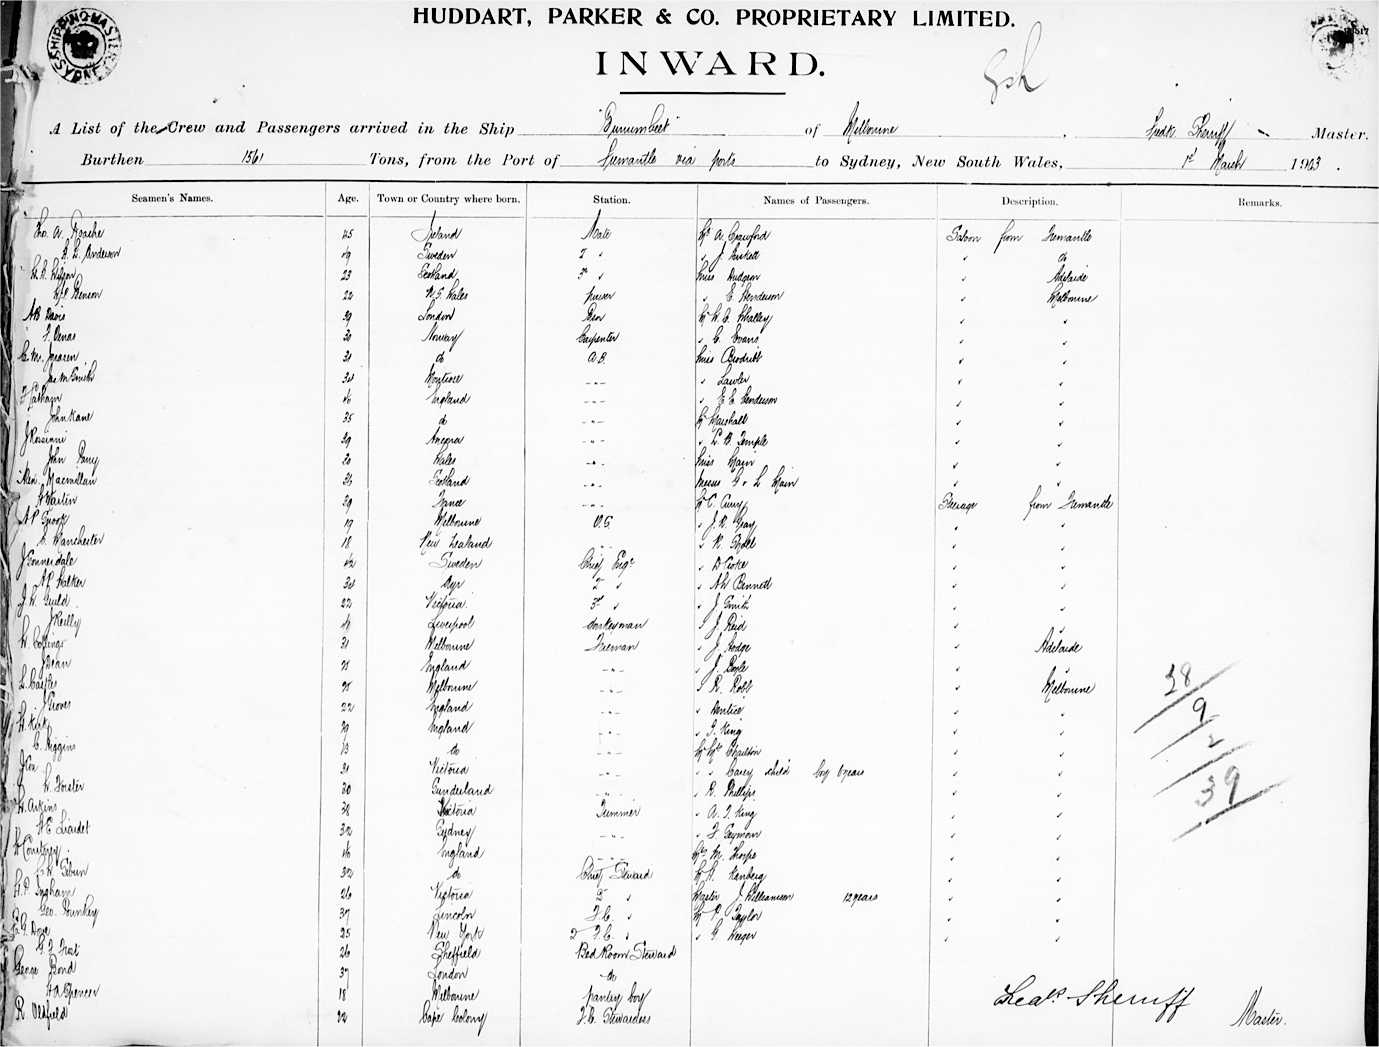 HUDDART, PARKER & CO. PROPRIETARY LIMITED.
INWARD.
SHIPPING MASTER SYDNEY
A List of the Crew and Passengers arrived in the Ship "Burrumbeet" of Melbourne, Fredk Sherriff Master.
Burthen 1561 Tons, from the Port of Fremantle via ports to Sydney, New South Wales, 1st March 1903.
Seamen's Names. Age. Town or Country where born. Station. Names of Passengers. Description. Remarks.
Tho. A. Roache 45 Ireland Mate Mr A. Crawford Saloon from Fremantle
Anderson 49 Sweden 2 " " J. " do
23 Scotland 3rd " Miss Hudson " Adelaide
Benson 22 N.S. Wales purser " E. Henderson " Melbourne
Davis 39 London Mr W. C. Whalley " "
30 Norway Carpenter " C. Evans " "
31 do A.B. Miss Brodribb " "
Jas. M. Smith 34 -"- " Lawler " "
Latham 46 England -"- " E. E. Henderson " "
John Kane 35 do -"- Mr Marshall " "
39 Ancona -"- " L. B. Temple " "
John Parry 20 Wales -"- Miss Main " "
Alex. Macmillan 36 Scotland -"- Misses G & L Main " "
H Martin 39 France -"- Mr C. Curry Steerage from Fremantle
A. P. Snook 19 Melbourne O.S. " J. R. Gray " "
Manchester 18 New Zealand " " "
J. Sonnerdale 42 Sweden Chief Engr " " "
A. P. Walker 34 Ayr 2 " " A W Bennett " "
J. W. Guild 22 Victoria 3rd " " J Smith " "
J Reilly Liverpool Donkeyman " J. Reid " "
W. Collings 31 Melbourne Fireman " J. Hodge " Adelaide
J Dean England -"- " J. Boyle " "
L. Castles Melbourne -"- " R. Robb " Melbourne
J Groves 22 England -"- " " "
W. Kirk 39 England -"- " G. King " "
C. Higgins do -"- Mr Mrs Charlton " "
J Cox 31 Victoria -"- " " Carey child boy 6 years " "
W. Forster 30 Sunderland -"- " R. Phillips " "
W. Atkins 38 Victoria Trimmer " A. J. King " "
A E Liardet 32 Sydney -"- " F Seymour " "
Courtney 46 England -"- Mrs M. Thorpe " "
32 do Chief Steward Mr H. " "
H. P. Ingham 26 Victoria 2 " Master J. Williamson 12 years " "
Geo. 37 Lincoln F.C. " Mr P. Taylor " "
G. Dove 25 New York 2 F.C. " " G. " "
Frost 26 Sheffield Bed Room Steward
George Bond 37 London do
H A Spencer 18 Melbourne pantry boy
R Oldfield 32 Cape Colony F.C. Stewardess
28
9
2
39
Fredk Sherriff
Master.